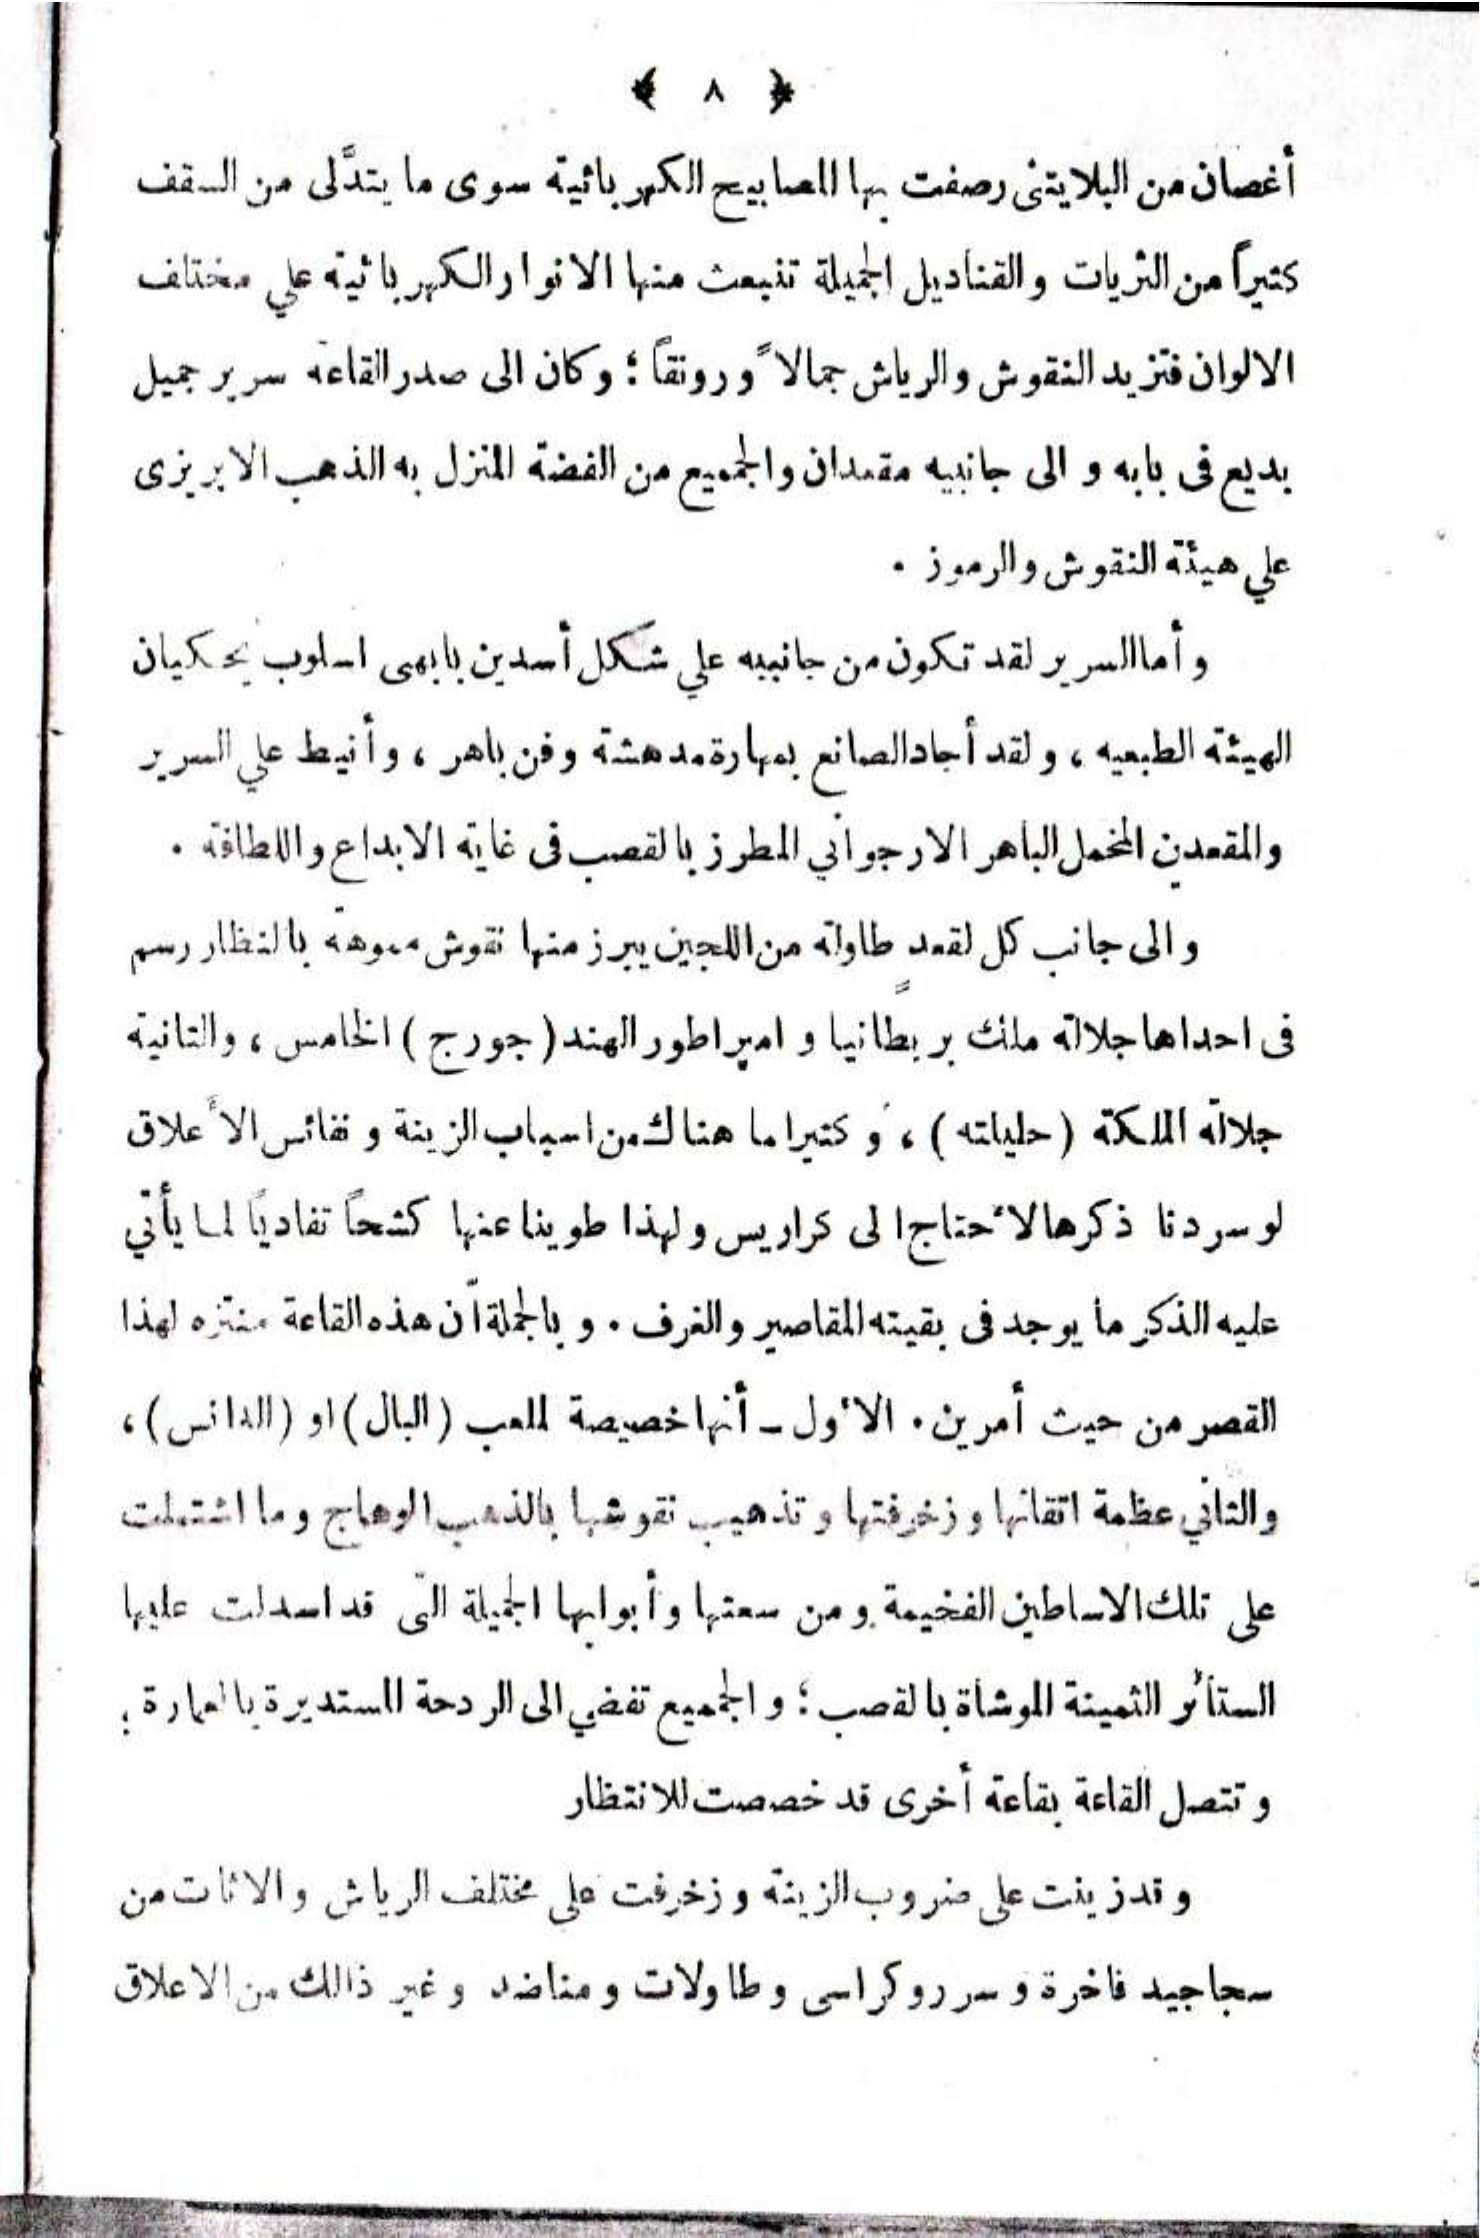 ﴿ ٨ ﴾
أغصان من البلايتنى رصفت بها المصابيح الكهربائية سوى ما يتدَّلى من السقف
كثيراً من الثريات والقناديل الجميلة تنبعث منها الانوار الكهربائية علي مختلف
الالوان فتزيد النقوش والرياش جمالاً ورونقاً ؛ وكان الى صدر القاعة سرير جميل
بديع فى بابه و الى جانبيه مقعدان والجميع من الفضة المنزل به الذهب الابريزى
علي هيئة النقوش والرموز .
و أما السرير لقد تكون من جانبيه علي شكل أسدين بابهى اسلوب يحكيان
الهيئة الطبعيه ، و لقد أجاد الصانع بمهارة مدهشة وفن باهر ، و أنيط علي السرير
والمقعدين المخمل الباهر الارجواني المطرز بالقصب فى غاية الابداع واللطافة .
و الى جانب كل لقعد طاولة من اللجين يبرز منها نقوش مموهة بالنظار رسم
فى احداها جلالة ملك بريطانيا و امپراطور الهند ( جورج ) الخامس ، والثانية
جلالة الملكة ( حليلته ) ، و كثيرا ما هناك من اسباب الزينة و نفائس الأعلاق
لو سردنا ذكرها لأحتاج الى كراريس ولهذا طوينا عنها كشحاً تفاديًا لما يأتي
عليه الذكر ما يوجد فى بقيته المقاصير والغرف . و بالجملة أن هذه القاعة منتزه لهذا
القصر من حيث أمرين . الأول ـ أنها خصيصة لملعب ( البال ) او ( الدانس ) ،
والثاني عظمة اتقانها و زخرفتها و تذهيب نقوشها بالذهب الوهاج و ما اشتملت
على تلك الاساطين الفخيمة ومن سعتها و أبوابها الجميلة التى قد اسدلت عليها
الستائر الثمينة الموشاة بالقصب ؛ و الجميع تفضي الى الردحة المستديرة بالعمارة .
و تتصل القاعة بقاعة أخرى قد خصصت للانتظار
و قد زينت على ضروب الزينة و زخرفت على مختلف الرياش والاثاث من
سجاجيد فاخرة و سرر وكراسى و طاولات و مناضد و غير ذالك من الاعلاق